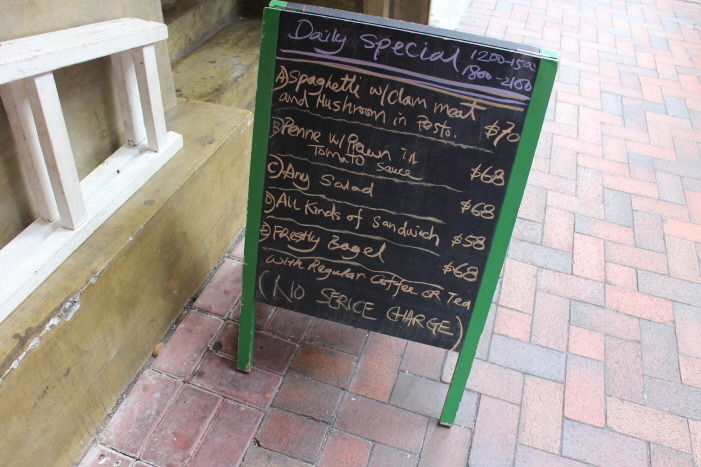 Daily Special 1200-1500
1800-2100
A) Spaghetti w/clam meat
and Mushroom in Pesto. $70
B) Penne w/ Prawn in
Tomato Sauce $68
C) Any Salad $68
D) All Kinds of Sandwich $58
E) Freshly Bagel $68
With Regular Coffee or Tea
(NO SERICE CHARGE)